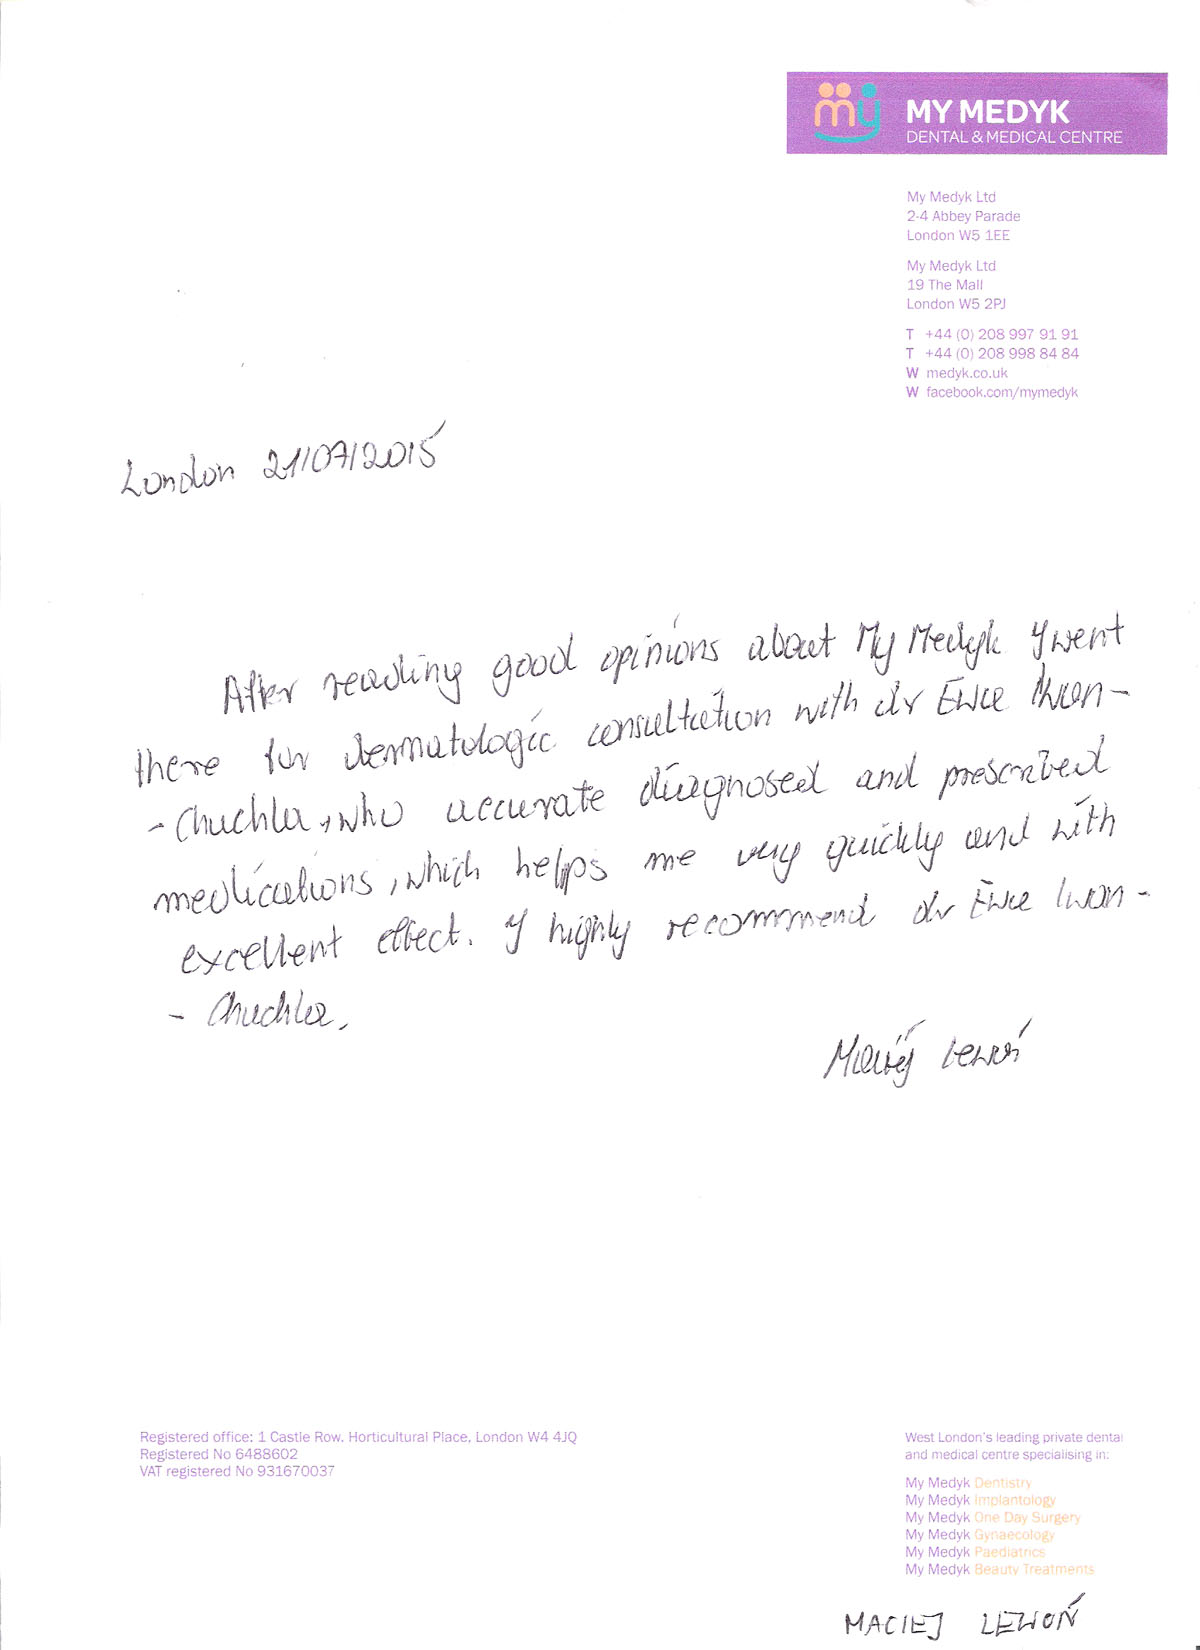 my MY MEDYK
DENTAL & MEDICAL CENTRE
My Medyk Ltd
2-4 Abbey Parade
London W5 1EE
My Medyk Ltd
19 The Mall
London W5 2PJ
T +44 (0) 208 997 91 91
T +44 (0) 208 998 84 84
W medyk.co.uk
W facebook.com/mymedyk
London 21/07/2015
After reading good opinions about My Medyk Y went
there for dermatologic consultation with dr Ewa Iwan-
- Chuchla, who accurate diagnosed and prescribed
medications, which helps me very quickly and with
excellent effect. Y highly recommend dr Ewa Iwan-
- Chuchla.
Maciej Lewoń
Registered office: 1 Castle Row, Horticultural Place, London W4 4JQ
Registered No 6488602
VAT registered No 931670037
West London's leading private dental
and medical centre specialising in:
My Medyk Dentistry
My Medyk Implantology
My Medyk One Day Surgery
My Medyk Gynaecology
My Medyk Paediatrics
My Medyk Beauty Treatments
MACIEJ LEWOŃ